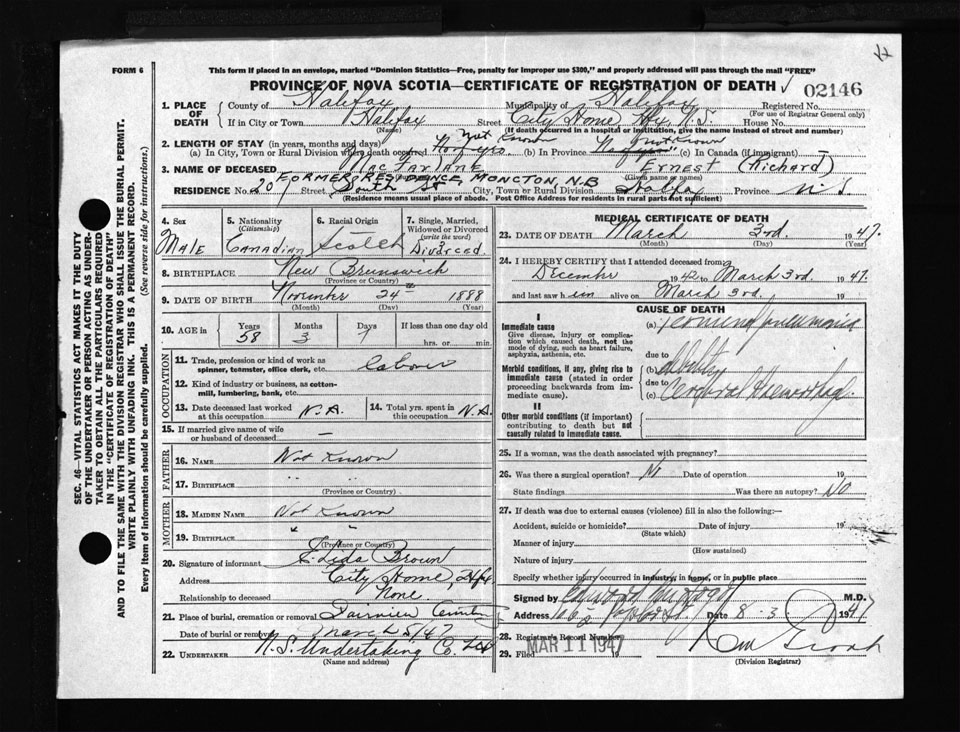 FORM 6
This form if placed in an envelope, marked "Dominion Statistics—Free, penalty for improper use $300," and properly addressed will pass through the mail "FREE"
PROVINCE OF NOVA SCOTIA—CERTIFICATE OF REGISTRATION OF DEATH 02146
1. PLACE OF DEATH
County of Halifax Municipality of Halifax Registered No.
(For use of Registrar General only)
If in City or Town Halifax Street City Home Hfx, N.S. House No.
(Name) (If death occurred in a hospital or institution, give the name instead of street and number)
2. LENGTH OF STAY (in years, months and days) Not Known Not Known
(a) In City, Town or Rural Division where death occurred (b) In Province (c) In Canada (if immigrant)
3. NAME OF DECEASED MacFarlane Ernest (Richard)
(Given name or names)
FORMER RESIDENCE, MONCTON, N.B
RESIDENCE No. 20 Street South St City, Town or Rural Division Halifax Province N.S
(Residence means usual place of abode. Post Office Address for residents in rural parts not sufficient)
4. Sex Male
5. Nationality (Citizenship) Canadian
6. Racial Origin Scotch
7. Single, Married, Widowed or Divorced (write the word) Divorced.
8. BIRTHPLACE New Brunswick
(Province or Country)
9. DATE OF BIRTH November 24 1888
(Month) (Day) (Year)
10. AGE in Years 58 Months 3 Days 7 If less than one day old hrs. or min.
OCCUPATION
11. Trade, profession or kind of work as spinner, teamster, office clerk, etc. labour
12. Kind of industry or business, as cotton-mill, lumbering, bank, etc.
13. Date deceased last worked at this occupation N.A.
14. Total yrs. spent in this occupation N.A.
15. If married give name of wife or husband of deceased —
FATHER
16. NAME Not Known
17. BIRTHPLACE " "
(Province or Country)
MOTHER
18. MAIDEN NAME Not Known
19. BIRTHPLACE " "
(Province or Country)
20. Signature of informant Lida Brown
Address City Home, Hfx
Relationship to deceased None
21. Place of burial, cremation or removal Fairview Cemetery
Date of burial or removal March 5/47
22. UNDERTAKER N.S. Undertaking Co. Ltd
(Name and address)
MEDICAL CERTIFICATE OF DEATH
23. DATE OF DEATH March 3rd. 1947.
(Month) (Day) (Year)
24. I HEREBY CERTIFY that I attended deceased from:
December 1942 to March 3rd 1947.
and last saw him alive on March 3rd. 19
CAUSE OF DEATH
I
Immediate cause
Give disease, injury or complication which caused death, not the mode of dying, such as heart failure, asphyxia, asthenia, etc.
(a) Terminal pneumonia
due to
Morbid conditions, if any, giving rise to immediate cause (stated in order proceeding backwards from immediate cause).
(b) debility
due to
(c) Cerebral Haemorrhage
II
Other morbid conditions (if important) contributing to death but not causally related to immediate cause.
25. If a woman, was the death associated with pregnancy?
26. Was there a surgical operation? No Date of operation 19
State findings Was there an autopsy? No
27. If death was due to external causes (violence) fill in also the following:—
Accident, suicide or homicide? Date of injury 19
(State which)
Manner of injury
(How sustained)
Nature of injury
Specify whether injury occurred in industry, in home, or in public place
Signed by Edward M.D.
Address Date 8.3. 1947
28. Registrar's Record Number
29. Filed MAR 11 1947 19
(Division Registrar)
SEC. 46—VITAL STATISTICS ACT MAKES IT THE DUTY
OF THE UNDERTAKER OR PERSON ACTING AS UNDER-
TAKER TO OBTAIN ALL THE PARTICULARS REQUIRED
IN THE "CERTIFICATE OF REGISTRATION OF DEATH" AND
TO FILE THE SAME WITH THE DIVISION REGISTRAR WHO SHALL ISSUE THE BURIAL PERMIT.
WRITE PLAINLY WITH UNFADING INK. THIS IS A PERMANENT RECORD.
Every item of information should be carefully supplied. (See reverse side for instructions.)